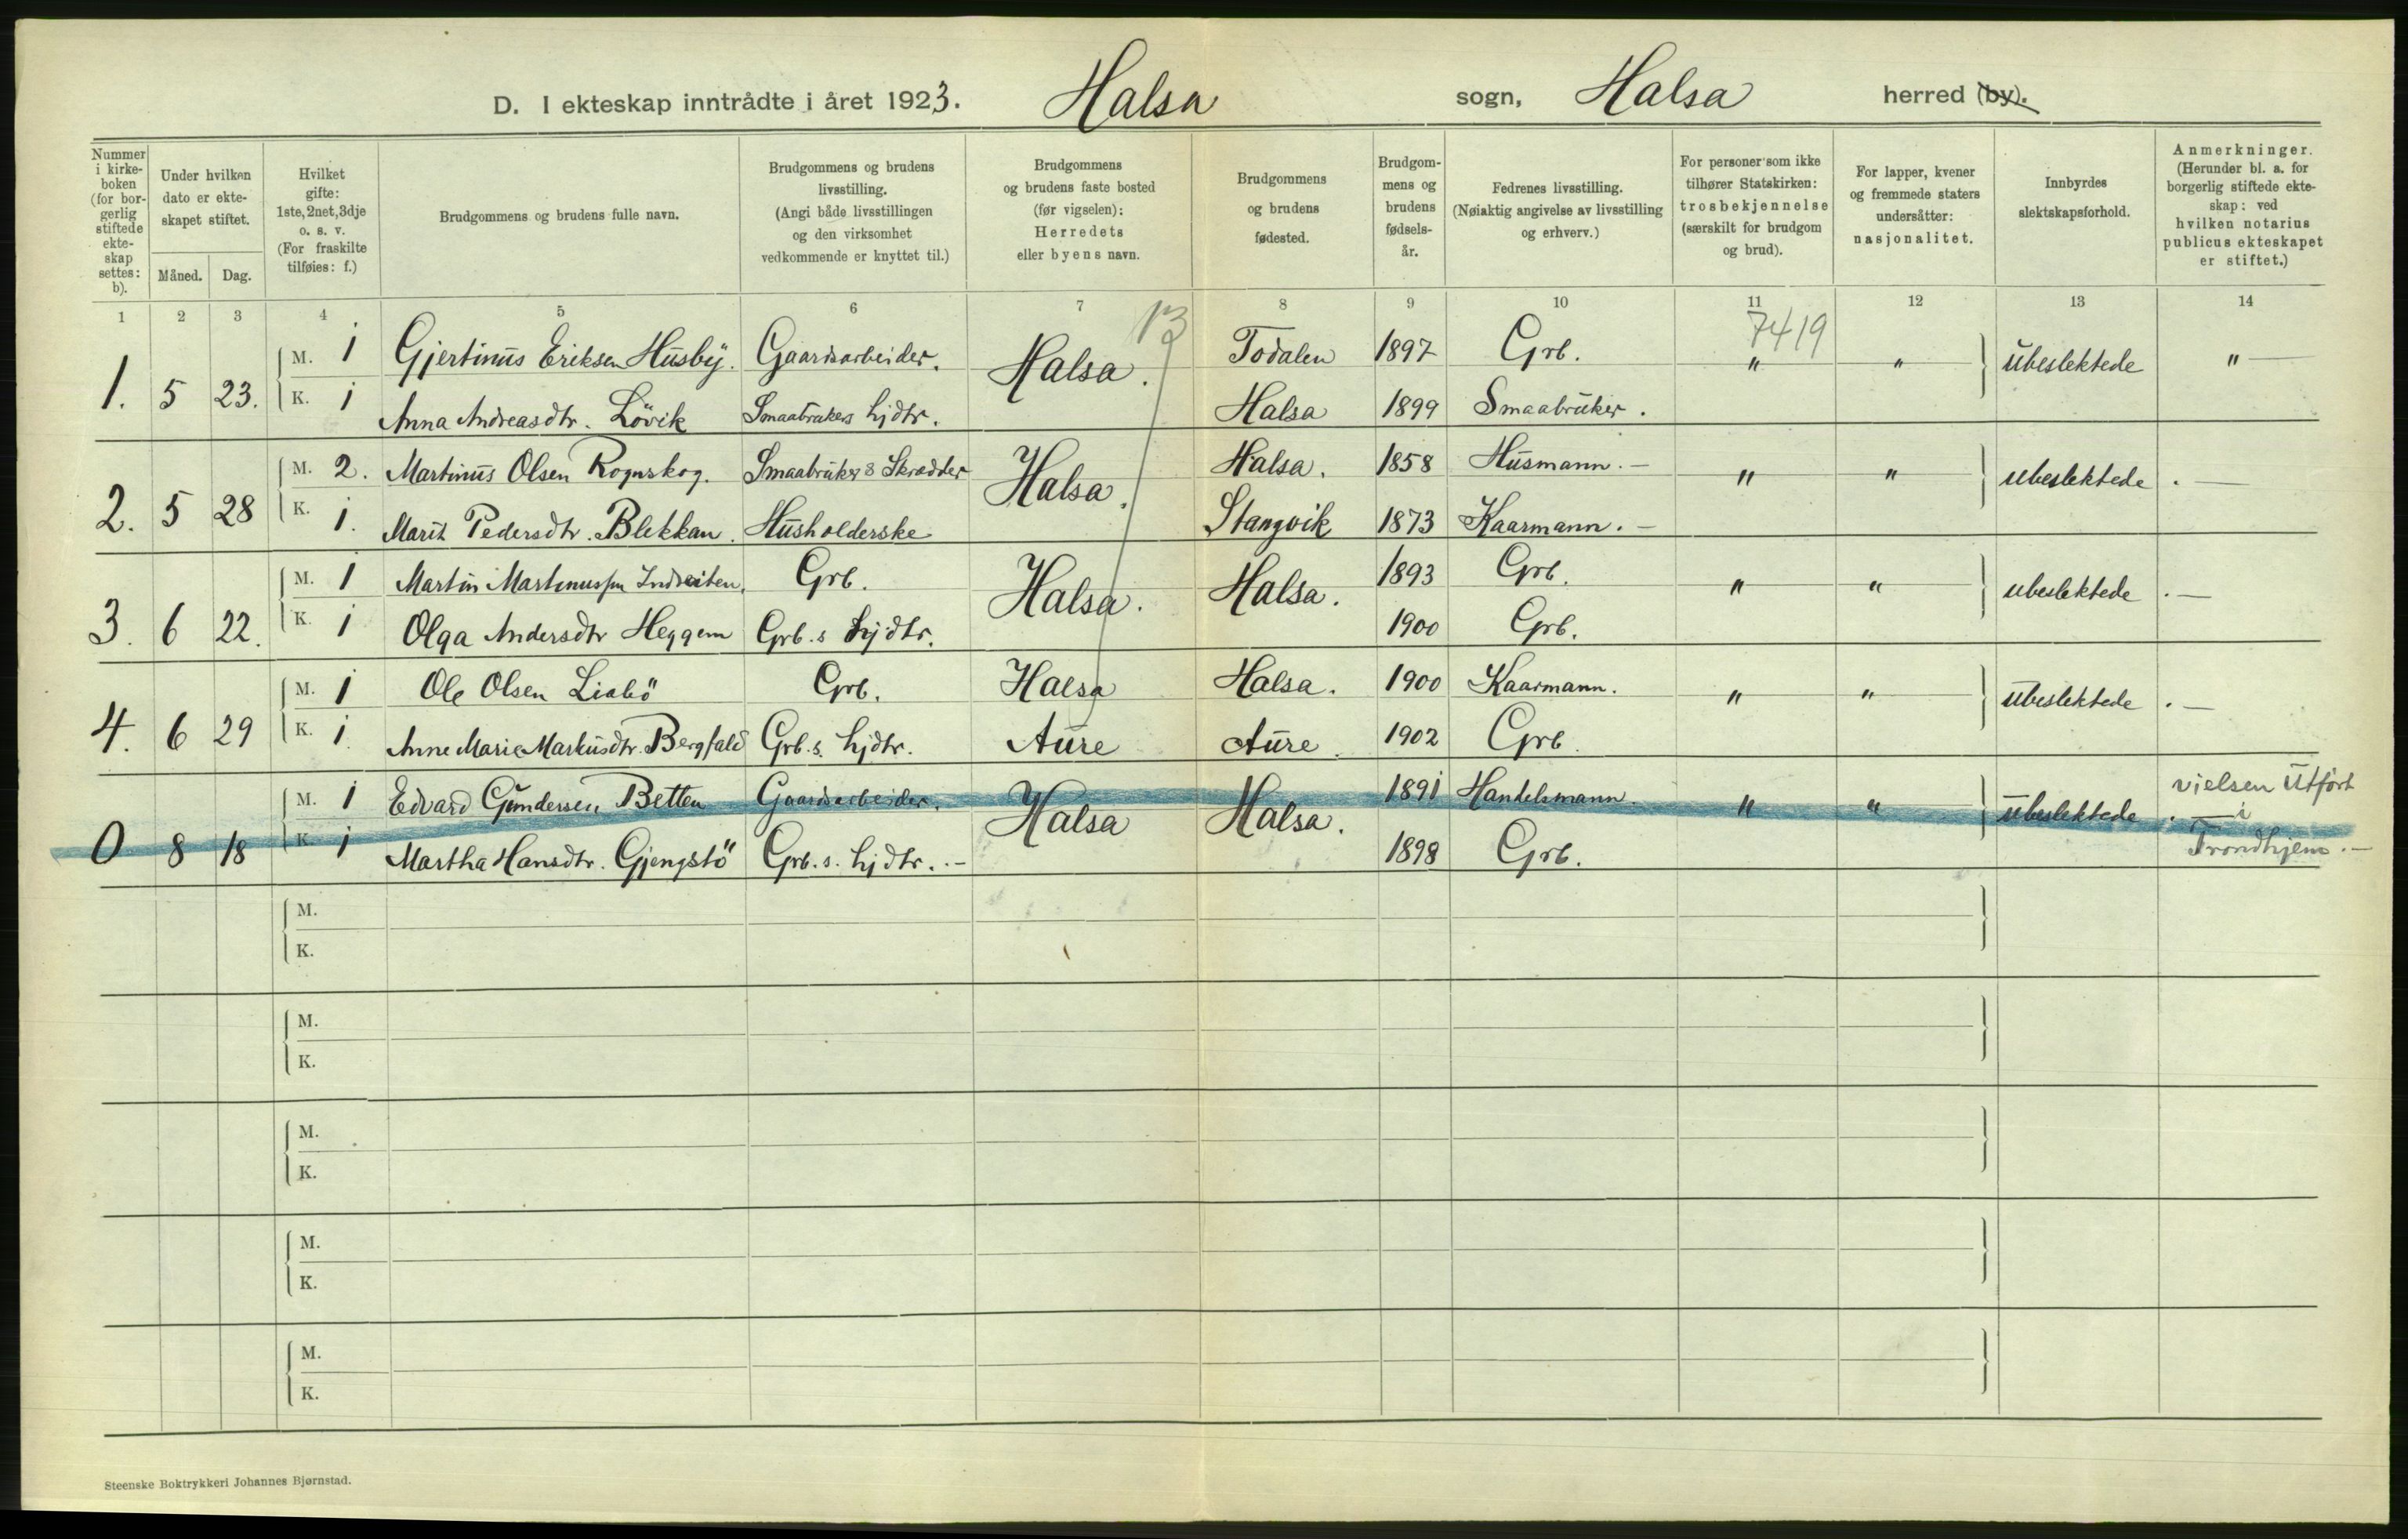 D. I ekteskap inntrådte i året 1923. Halsa sogn, Halsa herred (by).
Nummer i kirke-boken (for bor-gerlig stiftede ekte-skap settes: b).
Under hvilken dato er ekte-skapet stiftet.
Måned. Dag.
Hvilket gifte: 1ste, 2net, 3dje o. s. v. (For fraskilte tilføies: f.)
Brudgommens og brudens fulle navn.
Brudgommens og brudens livsstilling. (Angi både livsstillingen og den virksomhet vedkommende er knyttet til.)
Brudgommens og brudens faste bosted (før vigselen): Herredets eller byens navn.
Brudgommens og brudens fødested.
Brudgom-mens og brudens fødsels-år.
Fedrenes livsstilling. (Nøiaktig angivelse av livsstilling og erhverv.)
For personer som ikke tilhører Statskirken: trosbekjennelse (særskilt for brudgom og brud).
For lapper, kvener og fremmede staters undersåtter: nasjonalitet.
Innbyrdes slektskapsforhold.
Anmerkninger. (Herunder bl. a. for borgerlig stiftede ekte-skap: ved hvilken notarius publicus ekteskapet er stiftet.)
1 2 3 4 5 6 7 8 9 10 11 12 13 14
13 7419
M. 1 Gjertinus Eriksen Husby. Gaardsarbeider. Todalen 1897 Grb.
1. 5 23. Halsa. " " ubeslektede "
K. 1 Anna Andreasdtr. Lövik Smaabrukers hjdtr. Halsa 1899 Smaabruker.
M. 2. Martinus Olsen Rognskog. Smaabruker & Skrædder Halsa. 1858 Husmann.
2. 5 28 Halsa. " " ubeslektede
K. 1. Marit Pedersdtr. Blekkan. Husholderske Stangvik 1873 Kaarmann.
M. 1 Martin Martinussen Indreiten. Grb. 1893 Grb.
3. 6 22. Halsa. Halsa. " " ubeslektede
K. 1 Olga Andersdtr Heggem Grb.s hjdtr. 1900 Grb.
M. 1 Ole Olsen Liabö Grb. Halsa Halsa. 1900 Kaarmann.
4. 6 29 " " ubeslektede
K. 1. Anne Marie Markusdtr. Bergfald Grb.s. hjdtr. Aure Aure. 1902 Grb.
M. 1 Edvard Gundersen Betten Gaardsarbeider. 1891 Handelsmann.
0 8 18 Halsa Halsa. " " ubeslektede vielsen utfört i Trondhjem.
K. 1 Martha Hansdtr. Gjengstö Grb.s. hjdtr. 1898 Grb.
M.
K.
M.
K.
M.
K.
M.
K.
M.
K.
Steenske Boktrykkeri Johannes Bjørnstad.